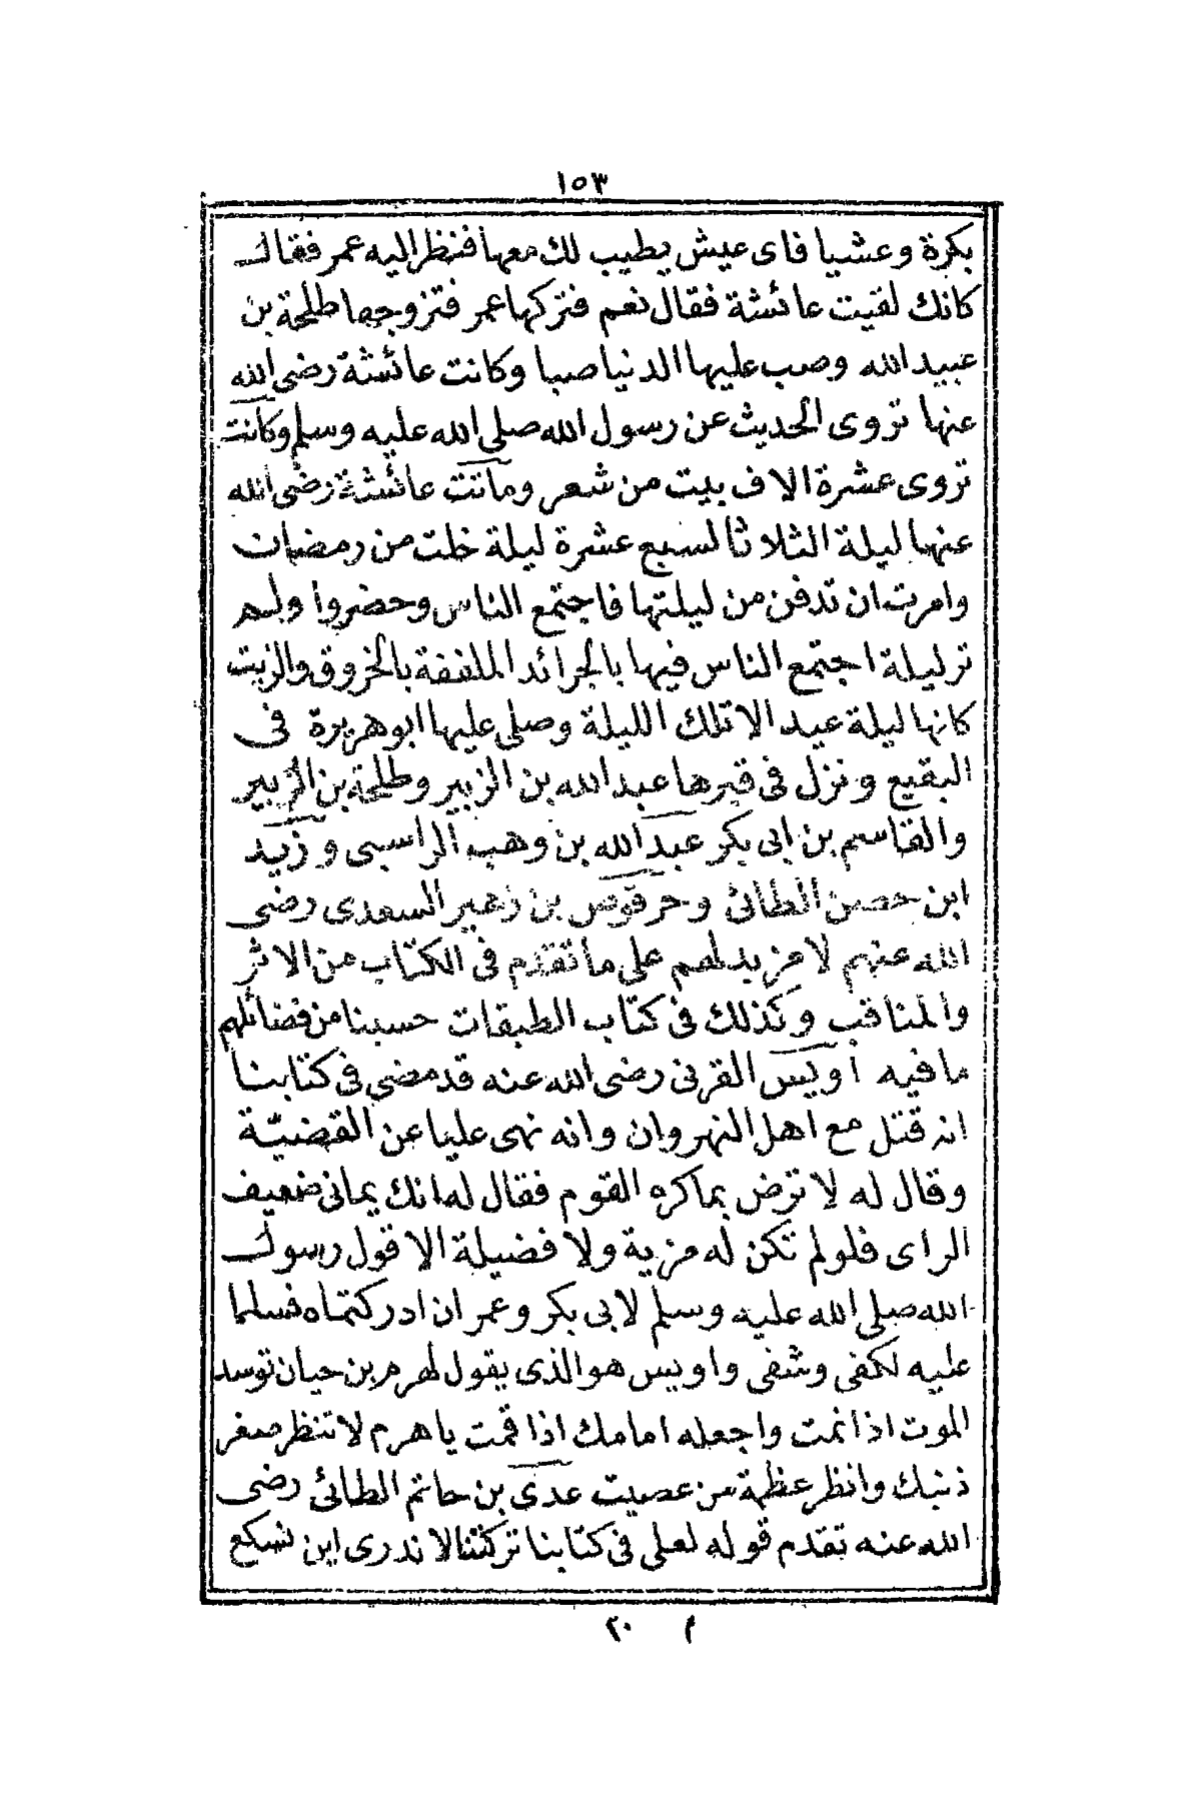 ١٥٣
بكرة وعشيا فاى عيش يطيب لك معها فنظر اليه عمر فقال
كانك لقيت عائشة فقال نعم فتركها عمر فتزوجها طلحة بن
عبيد الله وصب عليها الدنيا صبا وكانت عائشة رضى الله
عنها تروى الحديث عن رسول الله صلى الله عليه وسلم وكانت
تروى عشرة الاف بيت من شعر وماتت عائشة رضى الله
عنها ليلة الثلاثا لسبع عشرة ليلة خلت من رمضان
وامرت ان تدفن من ليلتها فاجتمع الناس وحضروا ولم
تر ليلة اجتمع الناس فيها بالجرائد الملففة بالخروق والزيت
كانها ليلة عيد الا تلك الليلة وصلى عليها ابو هريرة فى
البقيع ونزل فى قبرها عبد الله بن الزبير وطلحة بن الزبير
والقاسم بن ابى بكر عبد الله بن وهب الراسبى وزيد
ابن حصن الطائى وحرقوص بن زهير السعدى رضى
الله عنهم لا مزيد لهم على ما تقدم فى الكتاب من الاثر
والمناقب وكذلك فى كتاب الطبقات حسبنا من فضائلهم
ما فيه اويس القرنى رضى الله عنه قد مضى فى كتابنا
انه قتل مع اهل النهروان وانه نهى عليا عن القضيّة
وقال له لا ترض بما كره القوم فقال له انك يمانى ضعيف
الراى فلولم تكن له مزية ولا فضيلة الا قول رسول
الله صلى الله عليه وسلم لابى بكر وعمر ان ادركتماه فسلما
عليه لكفى وشفى واويس هو الذى يقول لهرم بن حيان توسد
الموت اذا نمت واجعله امامك اذا قمت يا هرم لا تنظر صغر
ذنبك وانظر عظمة من عصيت عدى بن حاتم الطائى رضى
الله عنه تقدم قوله لعلى فى كتابنا تركتنا لا ندرى اين نسكع
م ٢٠